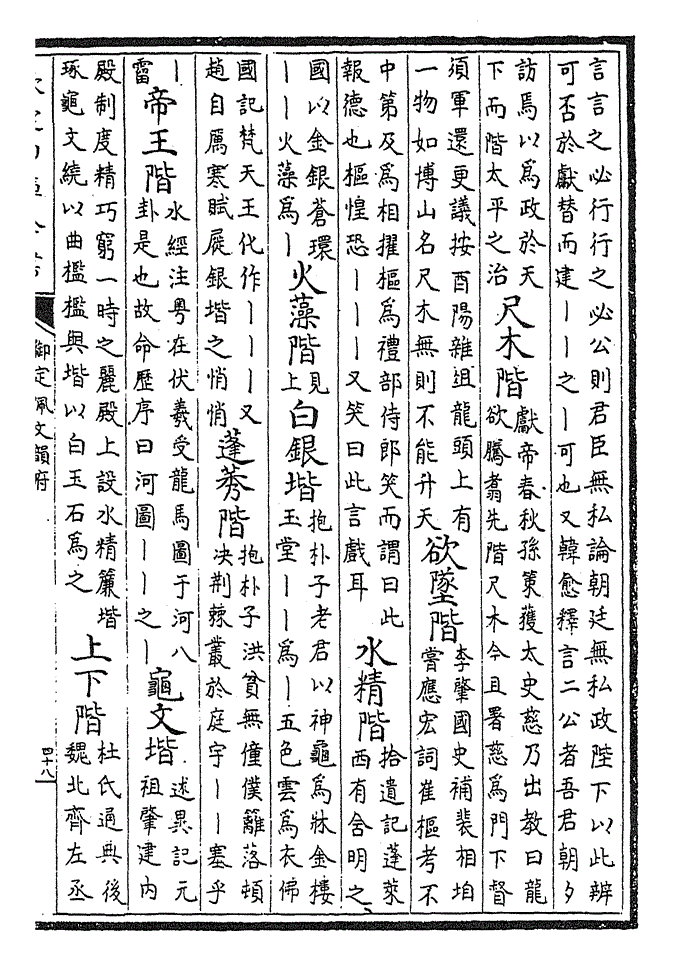 言言之必行行之必公則君臣無私論朝廷無私政陛下以此辨
可否於獻替而建丨丨之丨可也又韓愈釋言二公者吾君朝夕
訪焉以為政於天
下而階太平之治
尺木階
獻帝春秋孫策獲太史慈乃出教曰龍
欲騰翥先階尺木今且署慈為門下督
須軍還更議按酉陽雜俎龍頭上有
一物如博山名尺木無則不能升天
欲墜階
李肇國史補裴相垍
嘗應宏詞崔樞考不
中第及為相擢樞為禮部侍郎笑而謂曰此
報德也樞惶恐丨丨丨又笑曰此言戲耳
水精階
拾遺記蓬萊
西有含明之
國以金銀蒼環
丨丨火藻為丨
火藻階
見
上
白銀堦
抱朴子老君以神龜為牀金樓
玉堂丨丨為丨五色雲為衣佛
國記梵天王化作丨丨丨又
趙自厲寒賦屣銀堦之悄悄
蓬莠階
抱朴子洪貧無僮僕籬落頓
决荆棘叢於庭宇丨丨塞乎
丨
霤
帝王階
水經注粤在伏羲受龍馬圖于河八
卦是也故命歷序曰河圖丨丨之丨
龜文堦
述異記元
祖肇建内
殿制度精巧窮一時之麗殿上設水精簾堦
琢龜文繞以曲檻檻與堦以白玉石為之
上下階
杜氏通典後
魏北齊左丞
御定佩文韻府
四十八